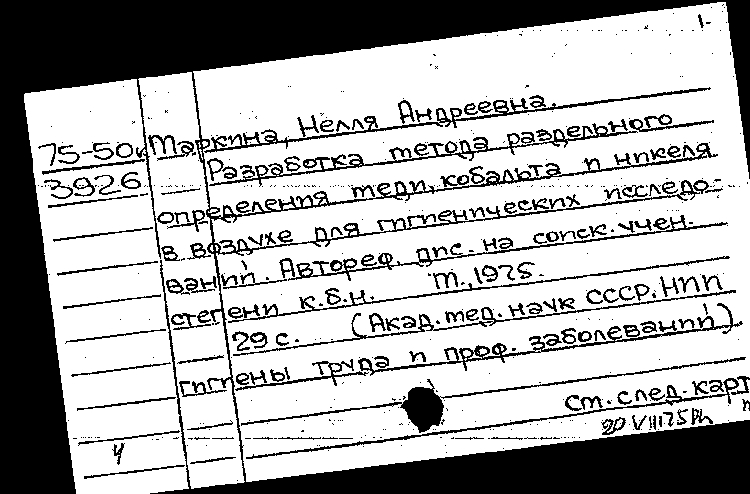 1.
75-50к Маркина, Нелля Андреевна.
3926 Разработка метода раздельного
определения меди, кобальта и никеля
в воздухе для гигиенических исследо-
ваний. Автореф. дис. на соиск. учен.
степени к.б.н. М., 1975.
29 с. (Акад. мед. наук СССР. НИИ
гигиены труда и проф. заболеваний).
См. след. карт
20 VIII 75
4